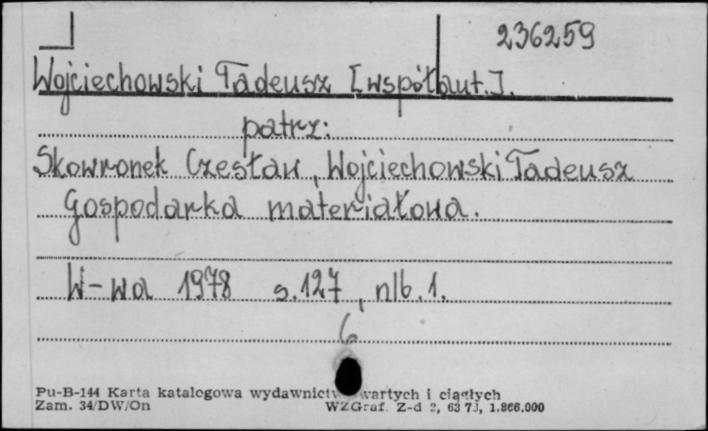 236259
Wojciechowski Tadeusz [współaut.].
patrz:
Skowronek Czesław, Wojciechowski Tadeusz
Gospodarka materiałowa.
W-wa 1978 s.127, nlb.1.
6
Pu-B-144 Karta katalogowa wydawnictw zwartych i ciągłych
Zam. 34/DW/On WZGraf. Z-d 2, 63 73, 1.866.000